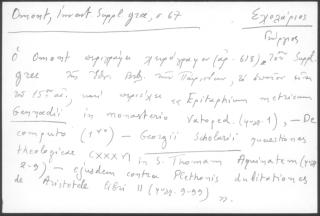 Omont, Invent. Suppl. grec, σ 67 Σχολάριος
Γεώργιος
Ὁ Omont περιγράφει χειρόγραφον (ἀρ. 615) τοῦ Suppl.
grec τῆς Ἐθν. Βιβ. τῶν Παρισίων, τὸ ὁποῖον εἶναι
τοῦ 15ου αἰ., καὶ περιέχει « Epitaphium metricum
Gennadii in monasterio Vatoped. (φ. 1), — De
computo (1νο) — Georgii Scholarii quaestiones
theologicae CXXXVI in S. Thomam Aquinatem
2-9) — ejusdem contra Plethonis dubitationes
de Aristotele libri II 9-99)
».